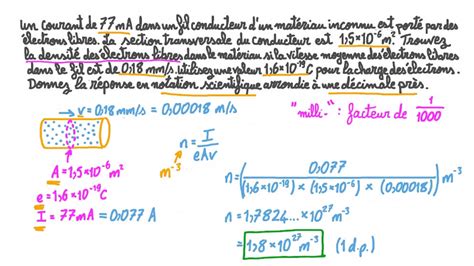 Un courant de 77 mA dans un fil conducteur d'un matériau inconnu est porté par des
électrons libres. La section transversale du conducteur est 1,5×10⁻⁶ m². Trouvez
la densité des électrons libres dans le matériau si la vitesse moyenne des électrons libres
dans le fil est de 0,18 mm/s. Utilisez une valeur 1,6×10⁻¹⁹ C pour la charge des électrons.
Donnez la réponse en notation scientifique arrondie à une décimale près.
v = 0,18 mm/s = 0,00018 m/s
"milli-" : facteur de 1/1000
n = I/eAv
m⁻³
A = 1,5×10⁻⁶ m²
e = 1,6×10⁻¹⁹ C
I = 77 mA = 0,077 A
n = 0,077/((1,6×10⁻¹⁹) × (1,5×10⁻⁶) × (0,00018)) m⁻³
n = 1,7824... × 10²⁷ m⁻³
= 1,8 × 10²⁷ m⁻³ (1 d.p.)